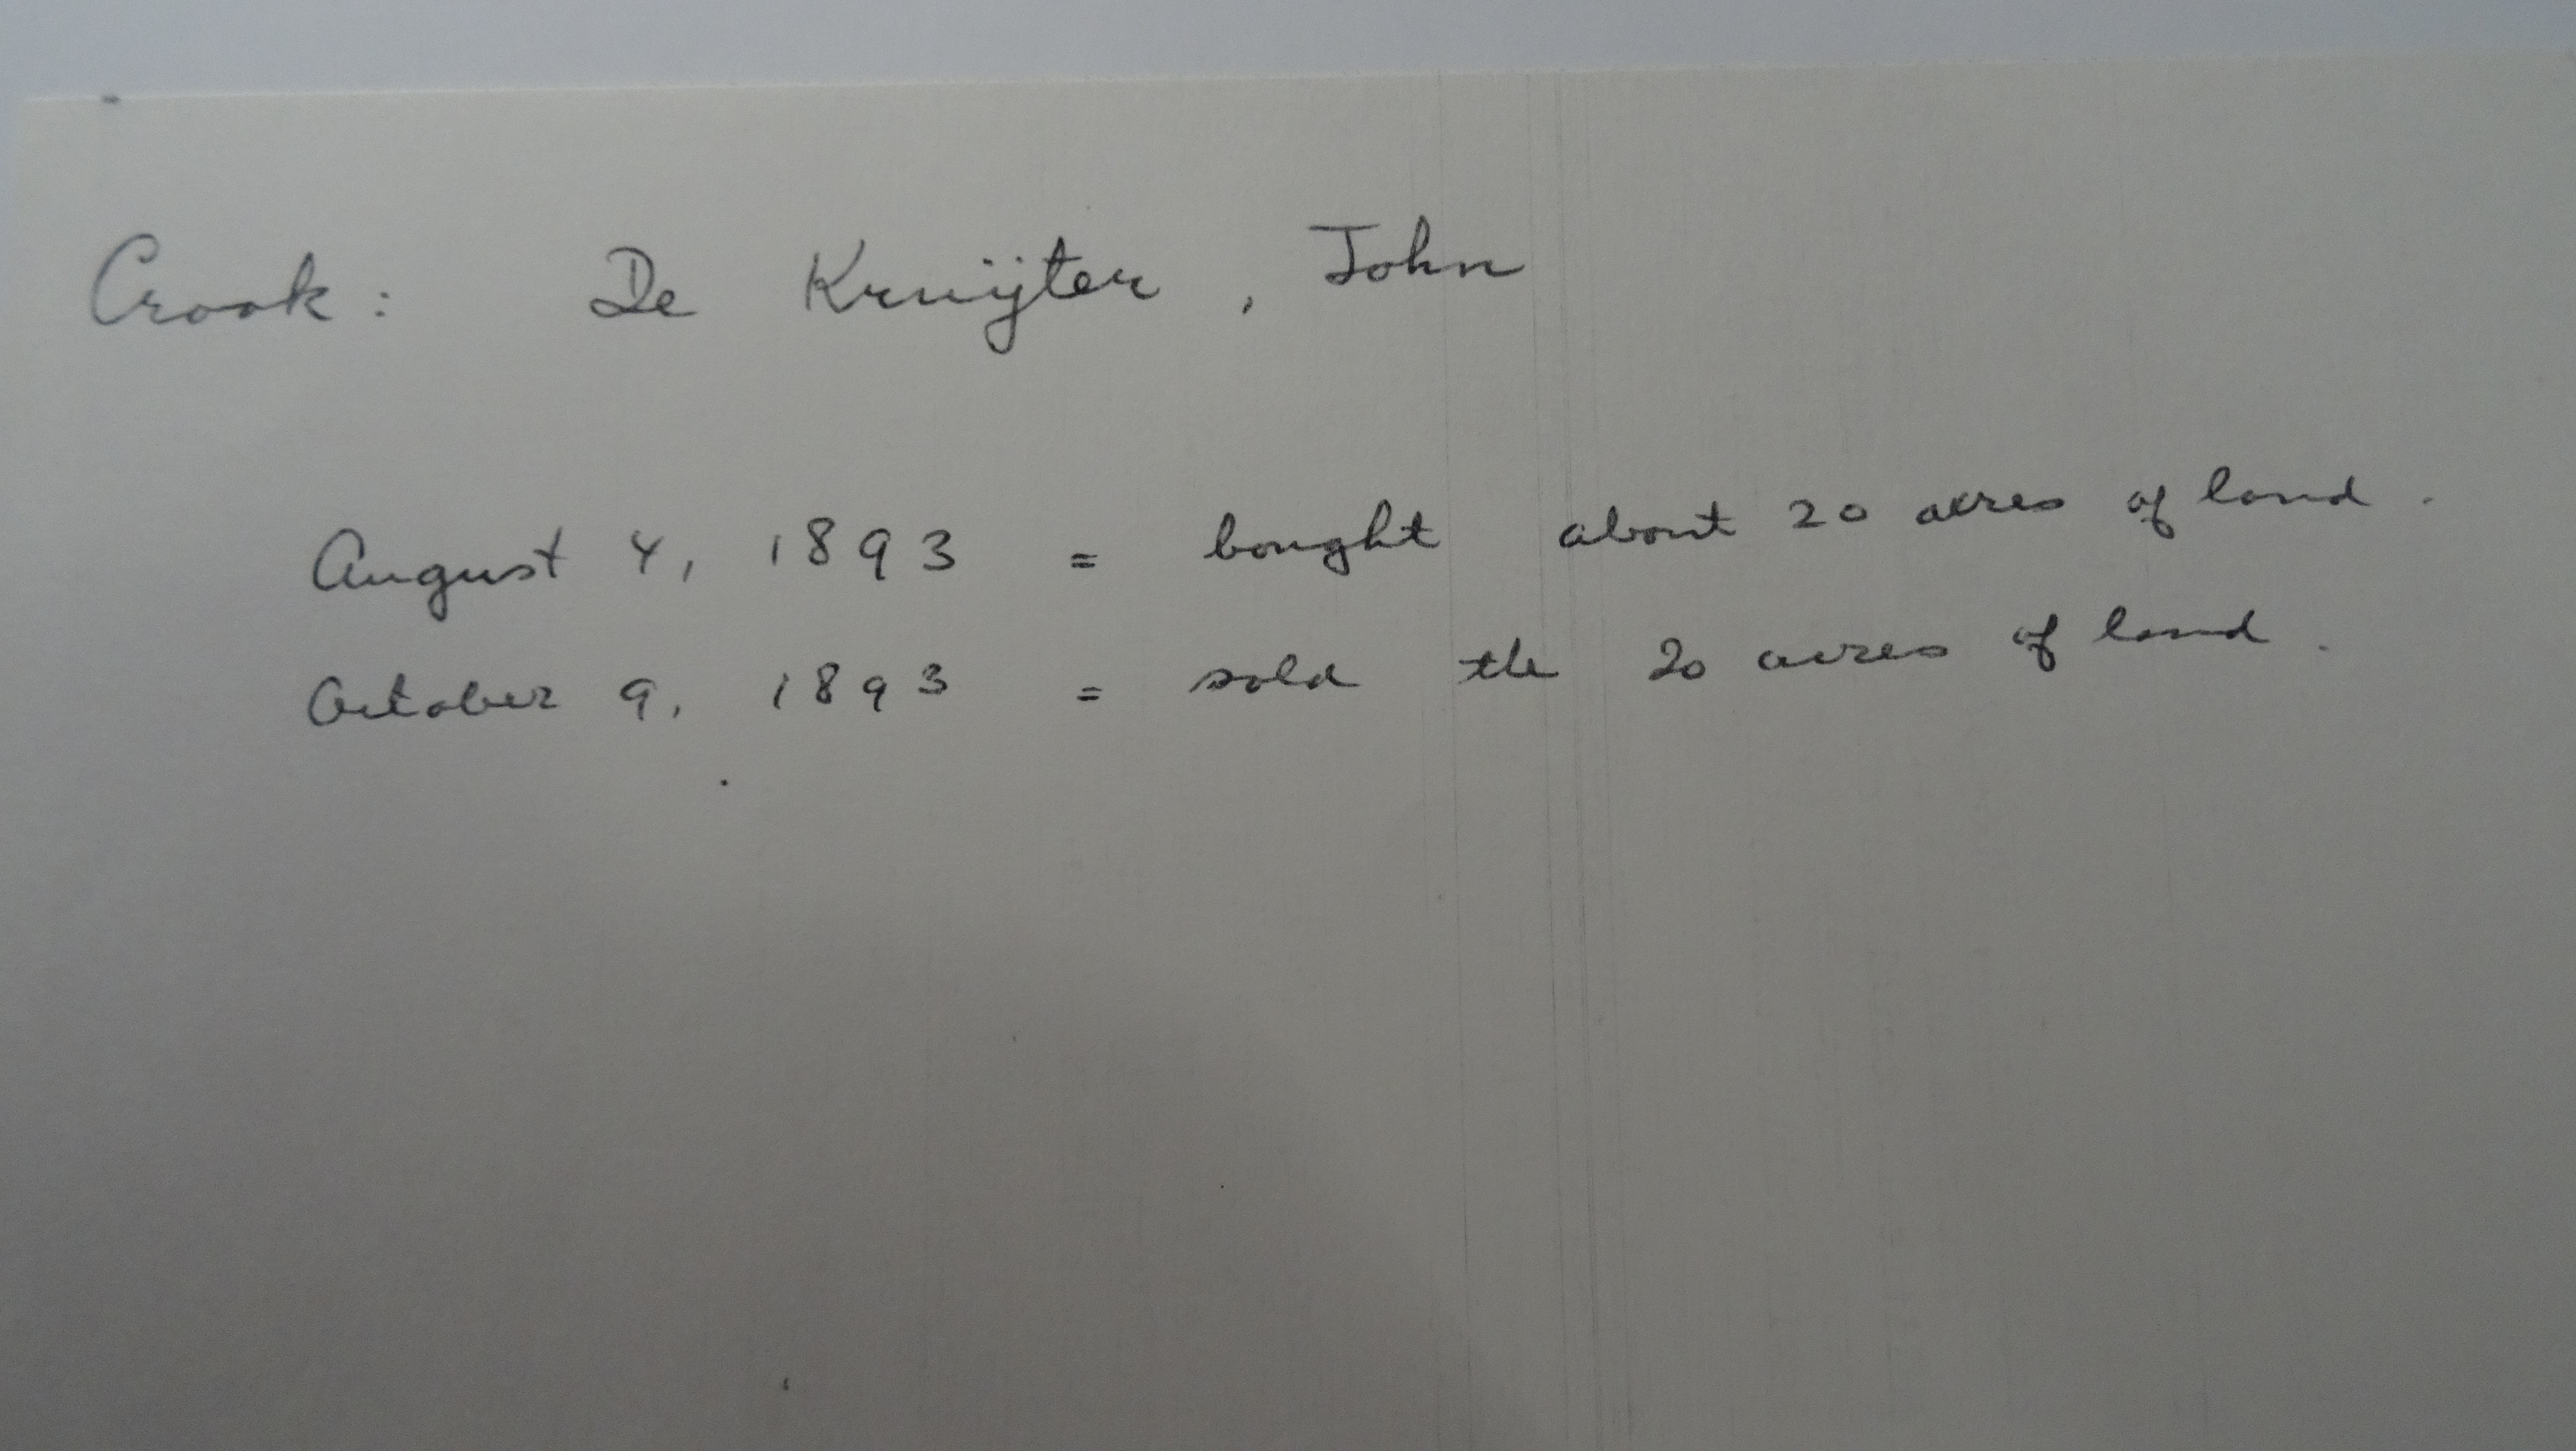 Crook: De Kruijter, John
August 4, 1893 = bought about 20 acres of land.
October 9, 1893 = sold the 20 acres of land.